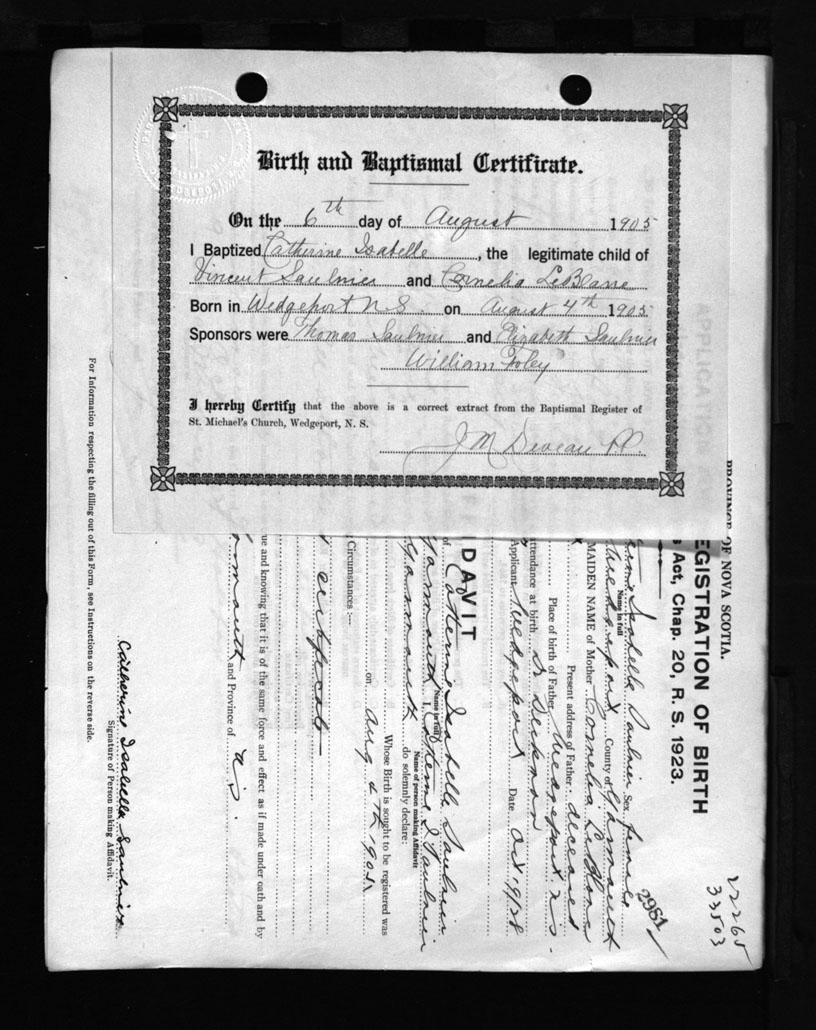 Birth and Baptismal Certificate.
On the 6th day of August 1905
I Baptized Catherine Isabelle, the legitimate child of
Vincent Saulnier and Cornelia LeBlanc
Born in Wedgeport N.S. on August 4th 1905
Sponsors were Thomas Saulnier and Elizabeth Saulnier
William Foley
I hereby Certify that the above is a correct extract from the Baptismal Register of
St. Michael's Church, Wedgeport, N. S.
J M Deveau PP.
PROVINCE OF NOVA SCOTIA.
EGISTRATION OF BIRTH
Act, Chap. 20, R. S. 1923.
22265
33503
2981
Isabelle Saulnier Sex female
Name in full
Wedgeport County of Yarmouth
MAIDEN NAME of Mother Cornelia LeBlanc
Present address of Father deceased
Place of birth of Father Wedgeport N.S.
ttendance at birth Dr
Applicant Wedgeport Date Oct 19/28
IDAVIT
of Catherine Isabelle Saulnier
Name in full
Yarmouth I, Catherine I Saulnier
Name of person making Affidavit
Yarmouth do solemnly declare:
Whose Birth is sought to be registered was
on Aug 4th 1905
Circumstances :—
certificate
ue and knowing that it is of the same force and effect as if made under oath and by
armouth and Province of N.S.
Catherine Isabella Saulnier
Signature of Person making Affidavit.
For Information respecting the filling out of this Form, see Instructions on the reverse side.